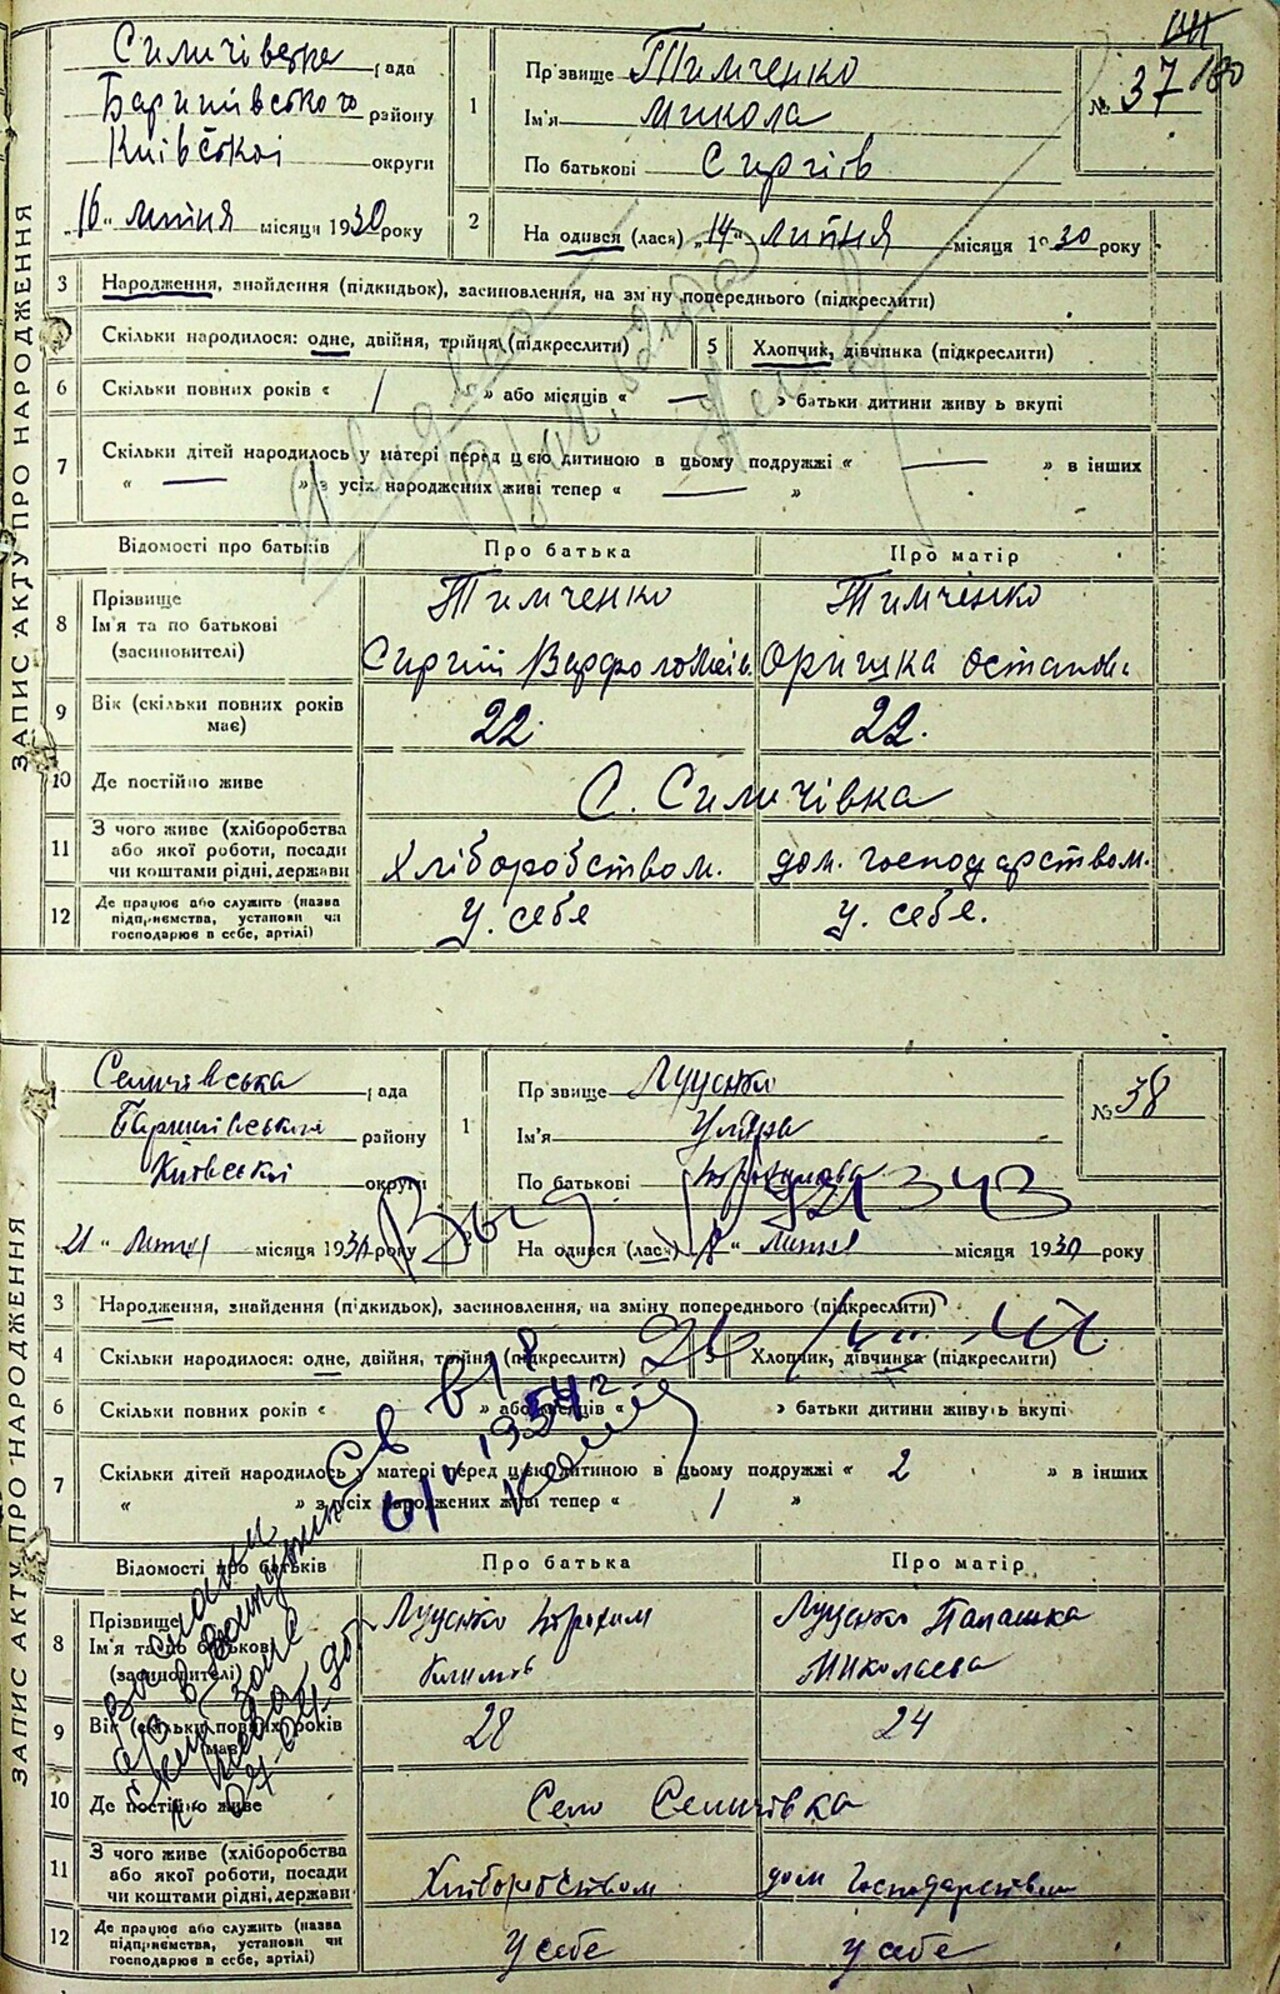 ЗАПИС АКТУ ПРО НАРОДЖЕННЯ
Силичівська рада
Баришівського району
Київської округи
„16“ липня місяця 1930 року
1
Прізвище Тимченко
Ім'я Микола
По батькові Сиргіїв
№ 37
180
2 На одився (лася) „14“ липня місяця 1930 року
3 Народження, знайдення (підкидьок), засиновлення, на зміну попереднього (підкреслити)
Скільки народилося: одне, двійня, трійня (підкреслити)
5 Хлопчик, дівчинка (підкреслити)
6 Скільки повних років « 1 » або місяців « — » батьки дитини живуть вкупі
7 Скільки дітей народилось у матері перед цією дитиною в цьому подружжі « — » в інших
« — » з усіх народжених живі тепер « — »
Відомості про батьків Про батька Про матір
8 Прізвище
Ім'я та по батькові
(засиновителі)
Тимченко
Сиргій Варфоломеїв.
Тимченко
Оришка Остапов.
9 Вік (скільки повних років має) 22. 22.
10 Де постійно живе С. Силичівка
11 З чого живе (хліборобства
або якої роботи, посади
чи коштами рідні, держави
Хліборобством. дом. господарством.
12 Де працює або служить (назва
підприємства, установи чи
господарює в себе, артілі)
у. себе у. себе.
ЗАПИС АКТУ ПРО НАРОДЖЕННЯ
Селичівська рада
Баришівського району
Київської округи
21 “ липня місяця 1930 року
1
Прізвище Луценко
Ім'я Уляна
По батькові Трохимова
№ 38
На одився (лася) “ липня місяця 1930 року
3 Народження, знайдення (підкидьок), засиновлення, на зміну попереднього (підкреслити)
4 Скільки народилося: одне, двійня, трійня (підкреслити)
5 Хлопчик, дівчинка (підкреслити)
6 Скільки повних років « » або місяців « » батьки дитини живуть вкупі
7 Скільки дітей народилось у матері перед цією дитиною в цьому подружжі « 2 » в інших
« » з усіх народжених живі тепер « 1 »
Відомості про батьків Про батька Про матір
8 Прізвище
Ім'я та по батькові
(засиновителі)
Луценко Трохим
Климов
Луценко Палашка
Миколаєва
9 Вік (скільки повних років має) 28 24
10 Де постійно живе Село Селичівка
11 З чого живе (хліборобства
або якої роботи, посади
чи коштами рідні, держави
Хліборобством дом господарством
12 Де працює або служить (назва
підприємства, установи чи
господарює в себе, артілі)
у себе у себе